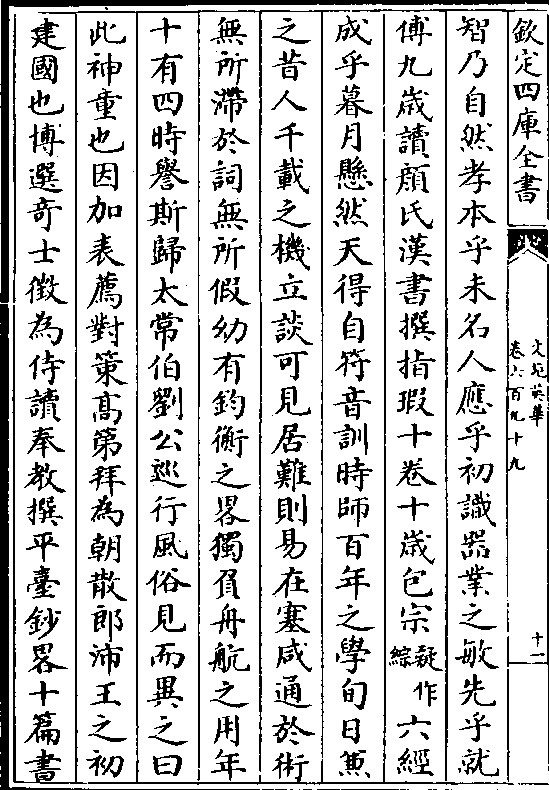 欽定四庫全書
文苑英華
卷六百九十九
十一
智乃自然孝本乎未名人應乎初識器業之敏先乎就
傅九歳讀顔氏漢書撰指瑕十卷十歳包宗疑作綜六經
成乎暮月懸然天得自符音訓時師百年之學旬日兼
之昔人千載之機立談可見居難則易在塞咸通於術
無所滯於詞無所假幼有鈞衡之畧獨負舟航之用年
十有四時譽斯歸太常伯劉公巡行風俗見而異之曰
此神童也因加表薦對策髙第拜為朝散郎沛王之初
建國也博選竒士徴為侍讀奉教撰平臺鈔畧十篇書